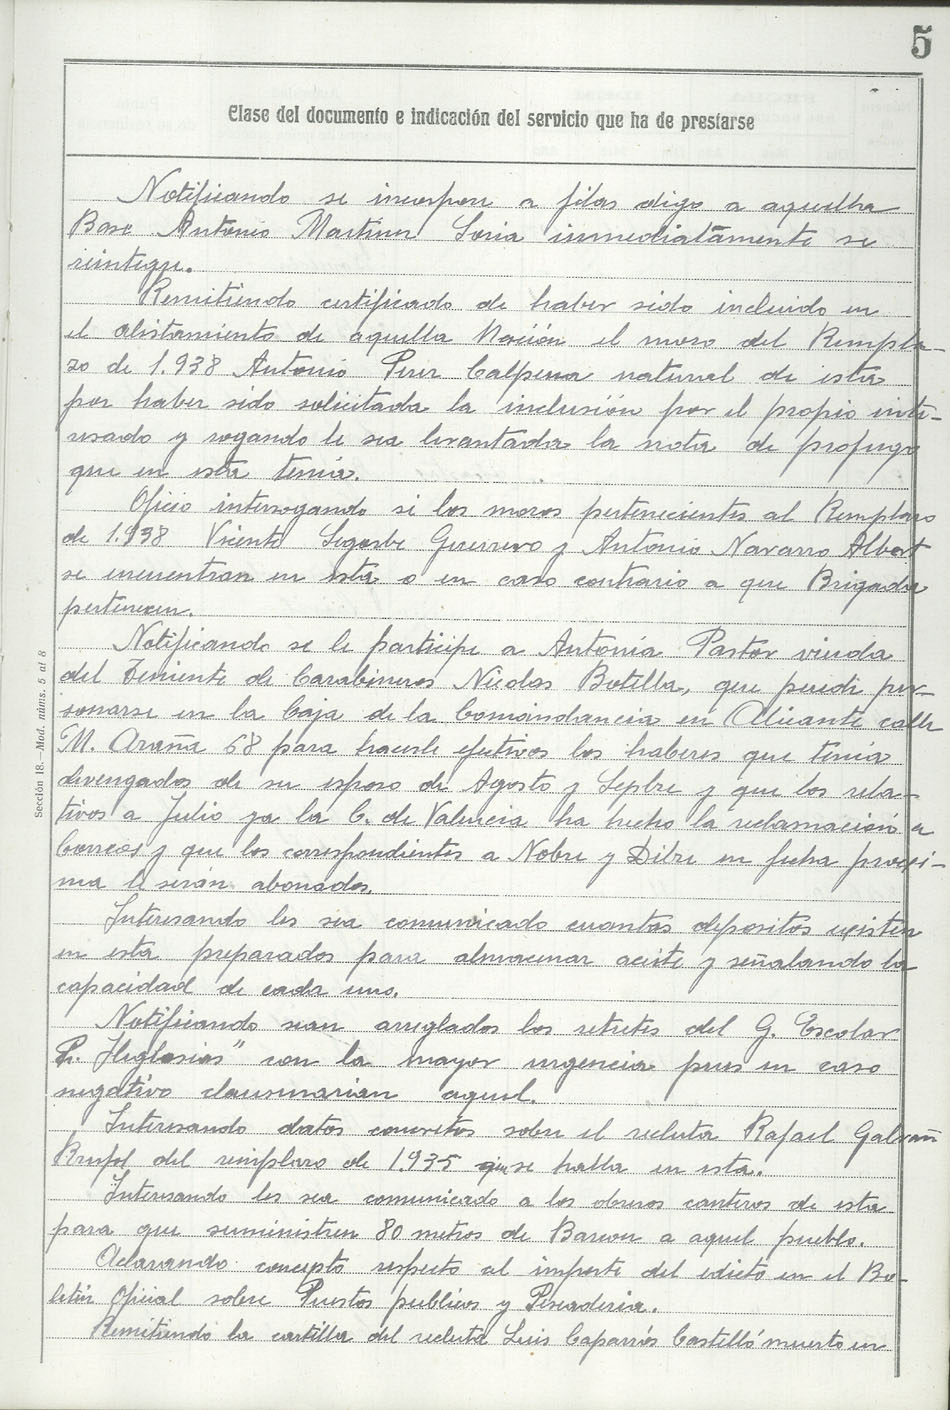 5
Clase del documento e indicación del servicio que ha de prestarse
Notificando se incorpore a filas digo a aquella
Base Antonio Martinez Soria inmediatamente se
reintegre.
Remitiendo certificado de haber sido incluido en
el alistamiento de aquella Nación el mozo del Rempla-
zo de 1.938 Antonio Perez Calpena natural de esta
por haber sido solicitada la inclusión por el propio inte-
resado y rogando le sea levantada la nota de profugo
que en esta tenía.
Oficio interrogando si los mozos pertenecientes al Remplazo
de 1.938 Vicente Segarbe Guerrero y Antonio Navarro Albert
se encuentran en esta o en caso contrario a que Brigada
pertenecen.
Notificando se le participe a Antonia Pastor viuda
del Teniente de Carabineros Nicolas Botella, que puede per-
sonarse en la Caja de la Comandancia en Alicante calle
M. Araña 68 para hacerle efectivos los haberes que tenía
devengados de su esposo de Agosto y Sepbre y que los rela-
tivos a Julio ya la C. de Valencia ha hecho la reclamación a
Correos y que los correspondientes a Nobre y Dibre en fecha proxi-
ma le serán abonados.
Interesando les sea comunicado cuantos depositos existen
en esta preparados para almacenar aceite y señalando la
capacidad de cada uno.
Notificando sean arreglados los retretes del G. Escolar
P. Iglesias" con la mayor urgencia pues en caso
negativo clausurarian aquel.
Interesando datos concretos sobre el recluta Rafael Galvañ
del remplazo de 1.935 que se halla en esta.
Interesando les sea comunicado a los obreros canteros de esta
para que suministren 80 metros de a aquel pueblo.
Aclarando concepto respecto al importe del edicto en el Bo-
letin Oficial sobre Puestos publicos y Pescaderia.
Remitiendo la cartilla del recluta Luis Caparrós Castelló muerto en
Sección 18.—Mod. núms. 5 al 8